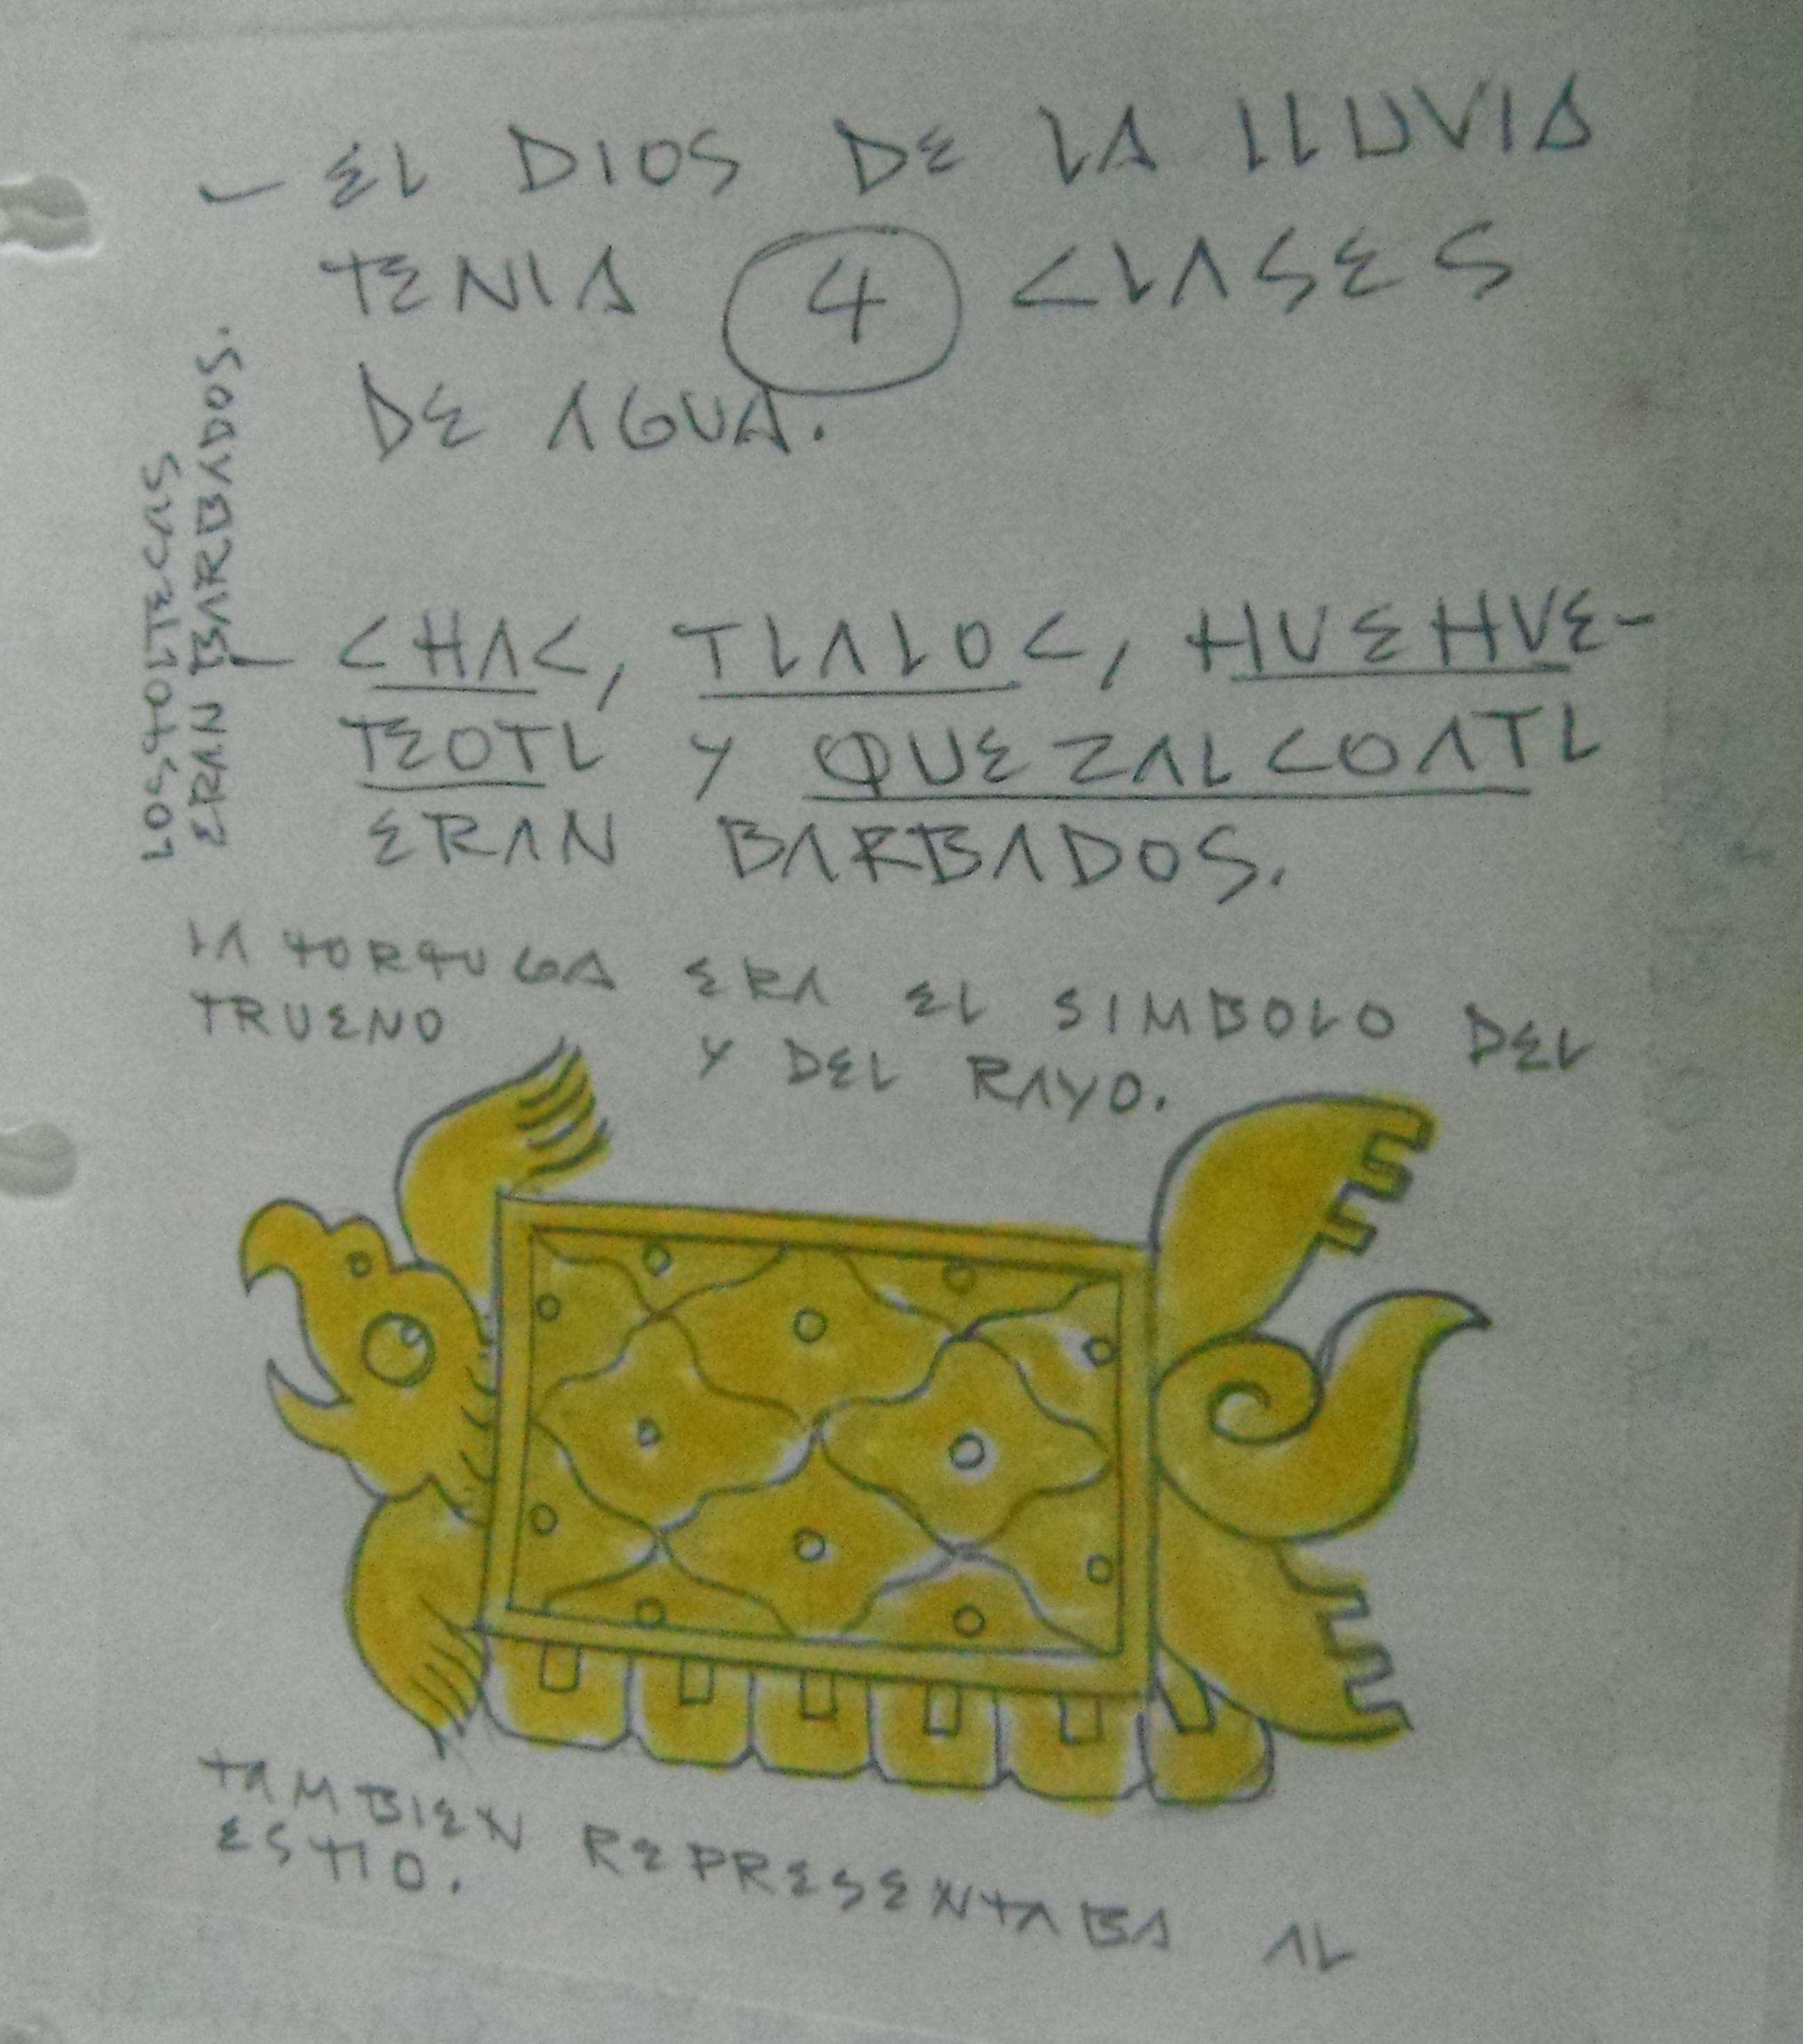 - EL DIOS DE LA LLUVIA
TENIA 4 CLASES
DE AGUA.
LOS TOLTECAS
ERAN BARBADOS.
- CHAC, TLALOC, HUEHUE-
TEOTL Y QUEZALCOATL
ERAN BARBADOS.
LA TORTUGA ERA EL SIMBOLO DEL
TRUENO Y DEL RAYO.
TAMBIEN REPRESENTABA AL
ESTIO.